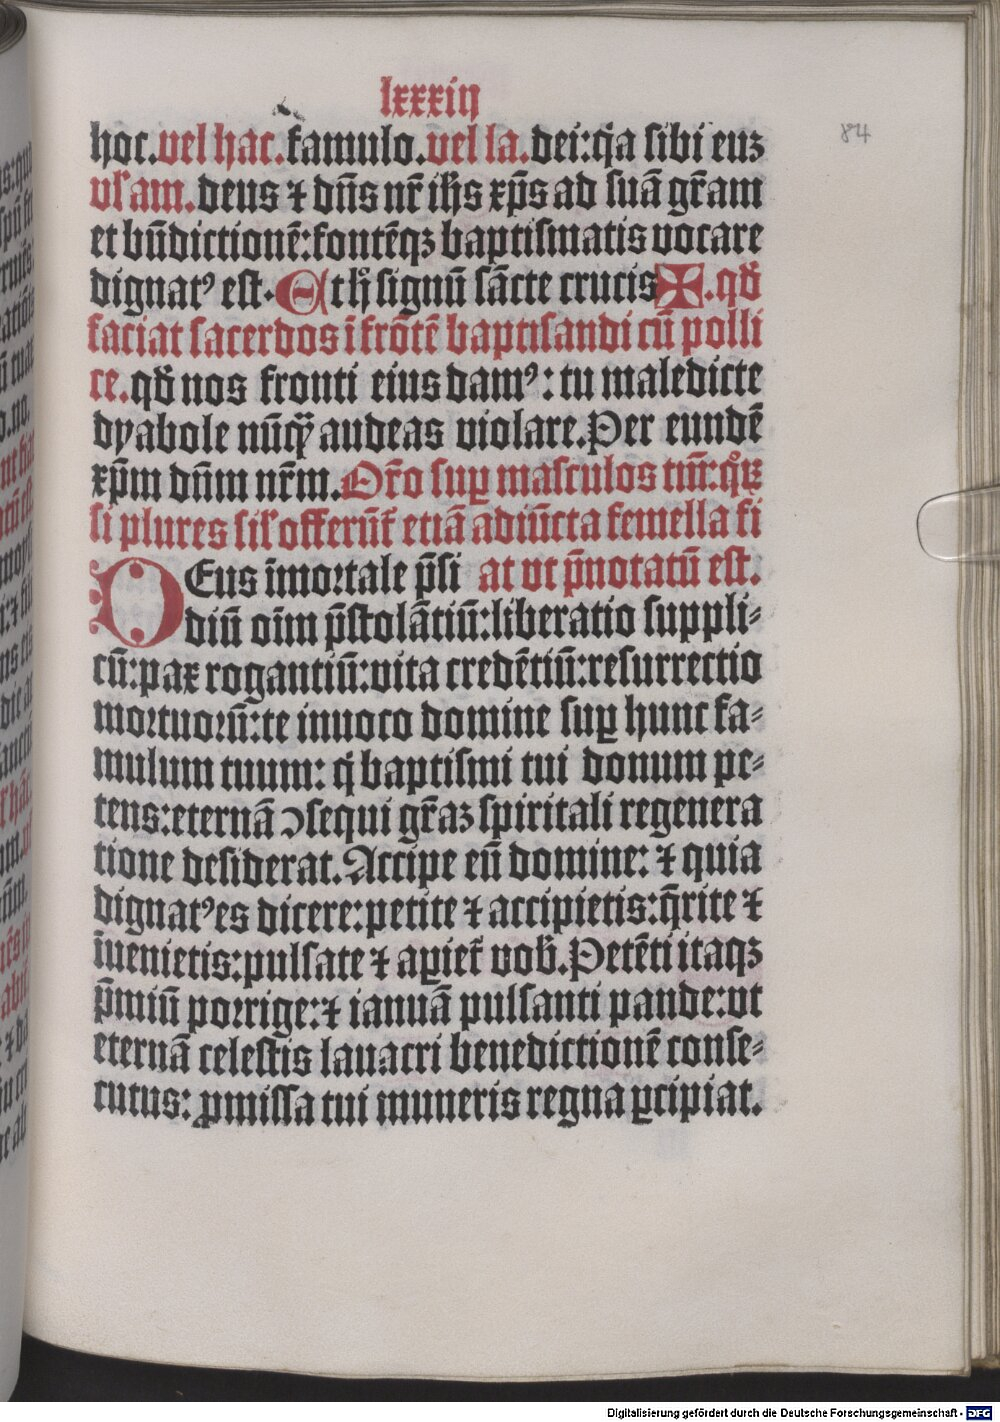 lxxxiij
84
hoc. vel hac. famulo. vel la. dei: q̇a sibi euʒ
vl̕ am. deus ⁊ dn̄s nr̄ ih̄s xp̄s ad suā gr̄am
et bn̄dictionē: fontēqʒ baptismatis vocare
dignatꝰ est. Et h̊ signū sācte crucis ✠. qd̕
faciat sacerdos ī frōtē baptisandi cū polli
ce. qd̕ nos fronti eius damꝰ: tu maledicte
dyabole nūq̄ audeas violare. Per eundē
xp̄m dn̄m nr̄m. Or̄o suꝑ masculos tm̄: q̊ꝝ
si plures sil̕ offerūt̕ etiā adiūcta femella fi
DEus īmortale p̄si at vt p̄notatū est.
diū oīm p̄stolātiū: liberatio suppli⸗
cū: pax rogantiū: vita credētiū: resurrectio
mortuorū: te inuoco domine suꝑ hunc fa⸗
mulum tuum: q̇ baptismi tui donum pe⸗
tens: eternā ↄsequi gr̄aʒ spiritali regenera
tione desiderat. Accipe eū domine: ⁊ quia
dignatꝰ es dicere: petite ⁊ accipietis: q̄rite ⁊
īuenietis: pulsate ⁊ aꝑiet̕ vob̕. Petēti itaqʒ
p̄miū porrige: ⁊ ianuā pulsanti pande: vt
eternā celestis lauacri benedictionē conse⸗
cutus: ꝓmissa tui muneris regna ꝑcipiat.
Digitalisierung gefördert durch die Deutsche Forschungsgemeinschaft - DFG